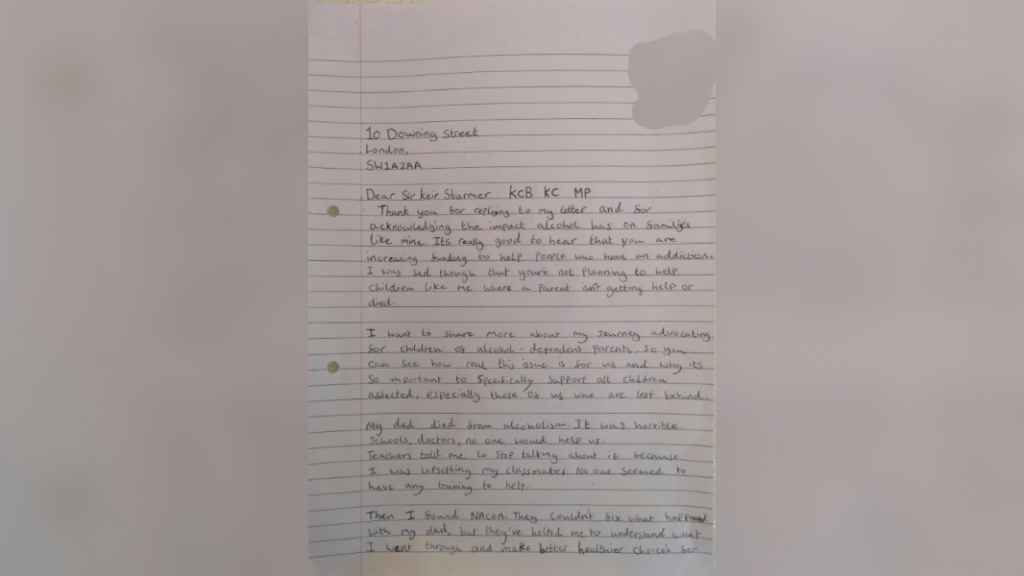 10 Downing Street
London,
SW1A2AA
Dear Sir Keir Starmer KCB KC MP
Thank you for replying to my letter and for
acknowledging the impact alcohol has on familys
like mine. Its really good to hear that you are
increasing funding to help people who have an addiction.
I was sad though that you're not planning to help
children like me where a parent isn't getting help or
died.
I want to share more about my journey advocating
for children of alcohol-dependent parents. So you
can see how real this issue is for us and why its
so important to specifically support all children
affected, especially those of us who are left behind.
My dad died from alcoholism. It was horrible.
Schools, doctors, no one would help us.
Teachers told me to stop talking about it because
I was upsetting my classmates. No one seemed to
have any training to help.
Then I found NACOA. They couldn't fix what happened
with my dad, but they've helped me to understand what
I went through and make better healthier choices for